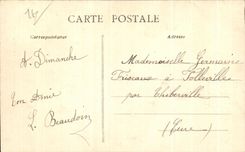 24
CARTE POSTALE
Correspondance
Adresse
A Dimanche
Ton amie
L. Beaudoin
Mademoiselle Germaine
à Folleville
par Thiberville
(Eure)